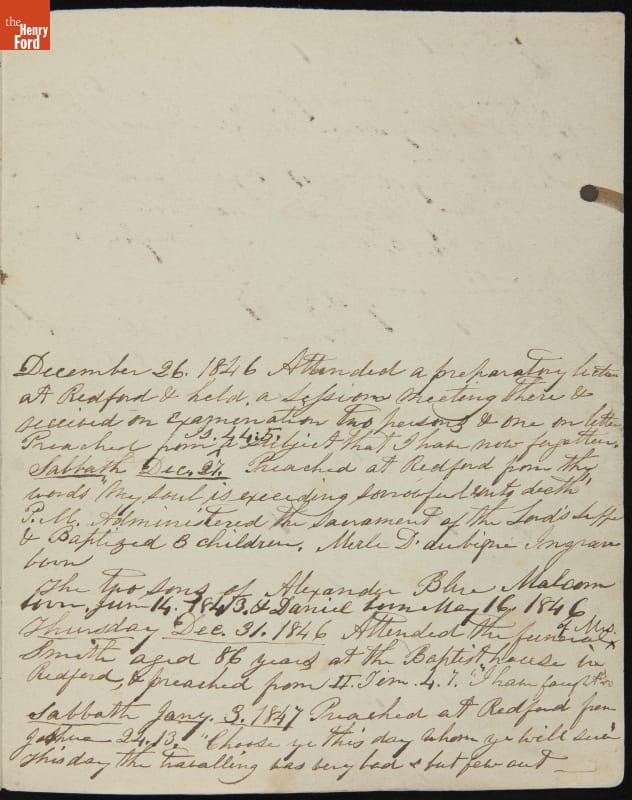 the
Henry
Ford
December 26. 1846 Attended a preparatory lecture
at Redford & held a Session meeting there &
received on Examenation two persons & one on letter
Ps. 44.5.
Preached from a subject that I have now forgotten,
Sabbath Dec. 27. Preached at Redford from the
words "My soul is exceeding sorrowful unto death"
P.M. Administered the Sacrament of the Lord's Supp
& Baptized 3 children. Merle D'aubigne Ingram
born
The two sons of Alexander Blue Malcom
born Jun 14. 1843. & Daniel born May 16. 1846
Thursday Dec. 31. 1846 Attended the funeral of Mrs.
Smith aged 86 years at the Baptist house in
Redford, & preached from II. Tem. 4. 7. "I have fought &c
Sabbath Jany. 3. 1847 Preached at Redford from
Joshua 24.13. "Choose ye this day whom ye will serve
This day the travelling was very bad & but few out